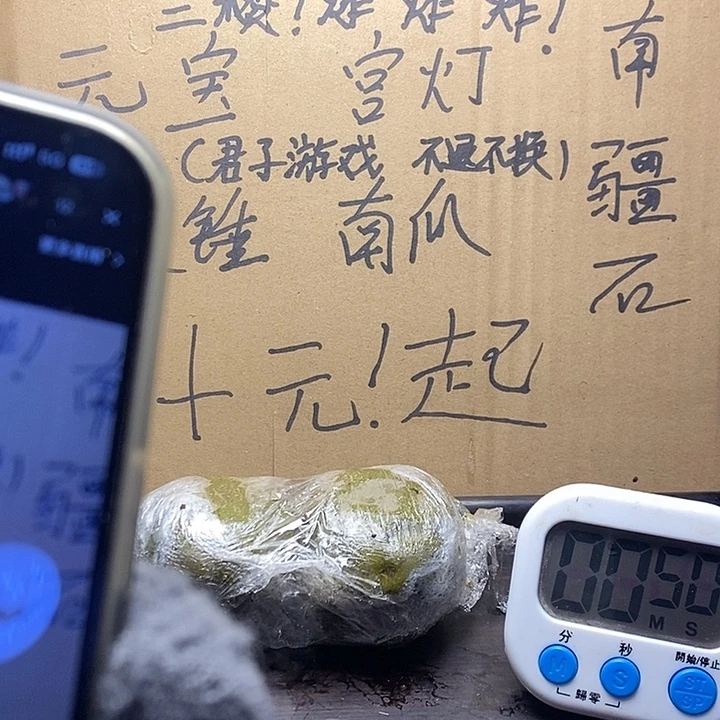 三损!炸炸炸!
元宝 宫灯
(君子游戏 不退不换)
锤 南瓜
十元!起
南疆石
00 50
M S
分 秒 開始/停止
M S
歸零